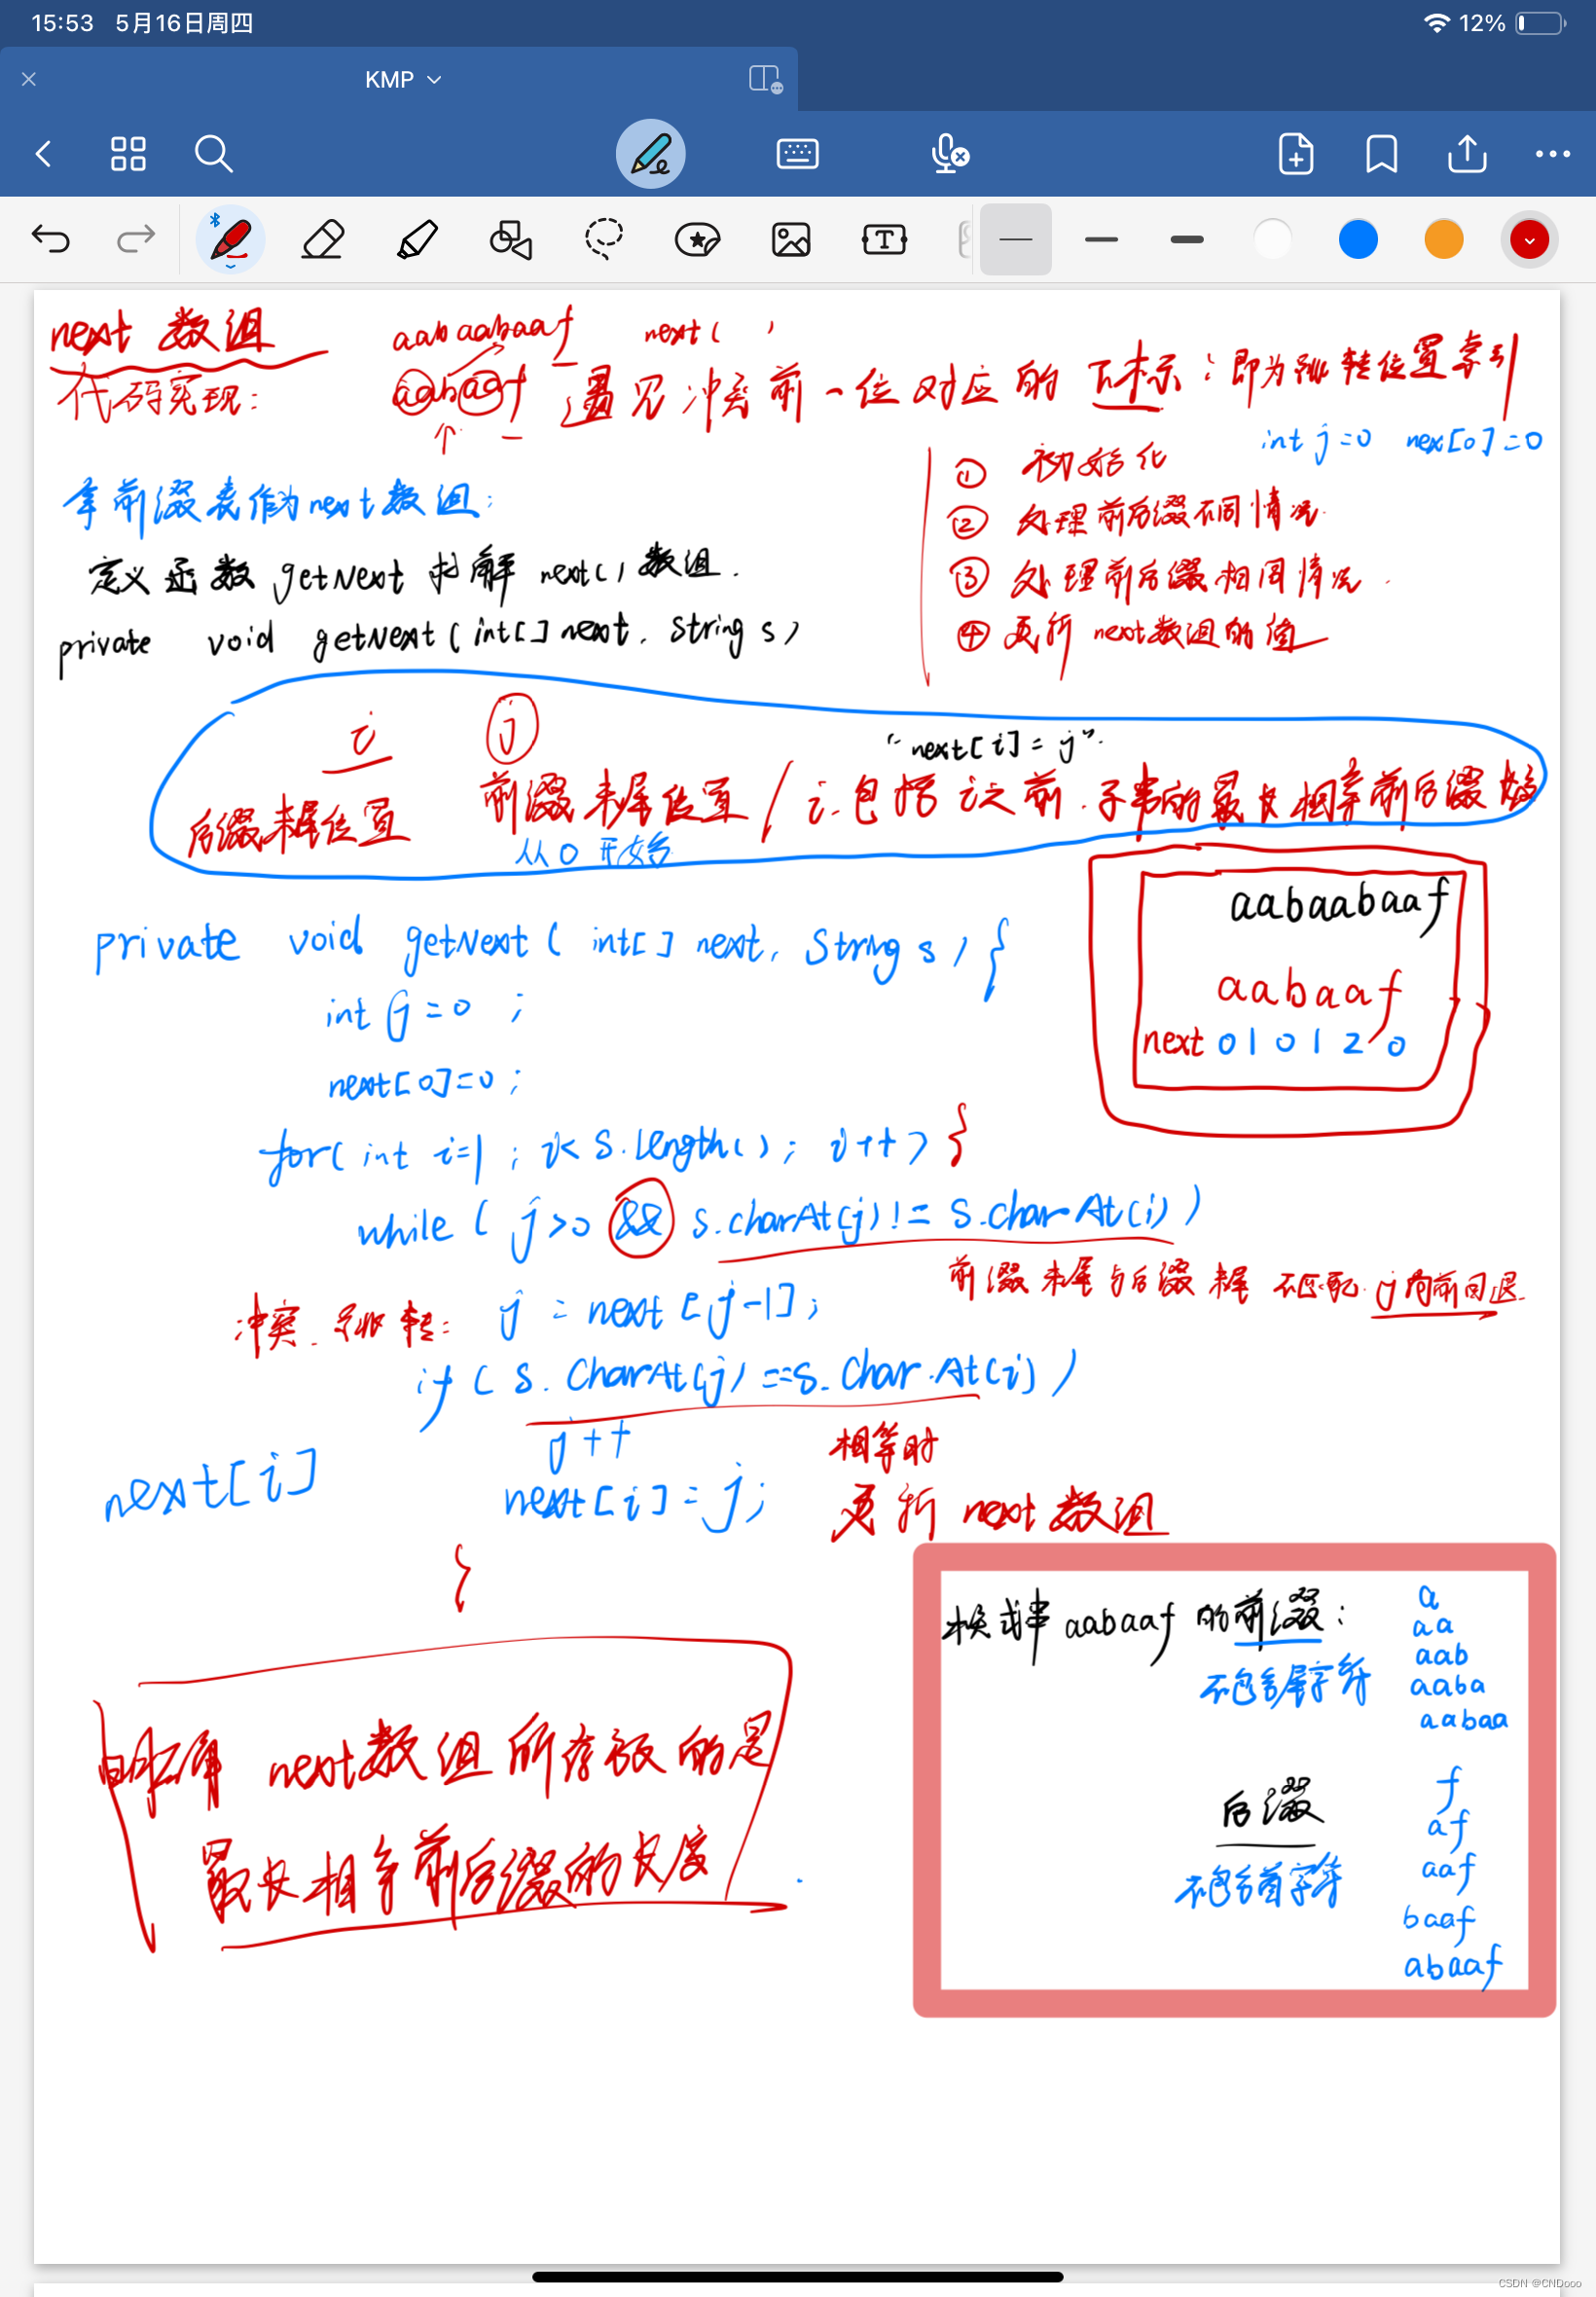 15:53 5月16日周四
12%
KMP
next 数组
aabaabaaf next( )
代码实现:
aabaaf 遇见冲突前一位对应的下标: 即为跳转位置索引
int j=0 nex[0]=0
① 初始化
拿前缀表作为next数组:
② 处理前后缀不同情况.
定义函数 getNext 求解 next() 数组.
③ 处理前后缀相同情况.
private void getNext(int[] next, String s)
④ 更新 next数组的值
i j
"next[i]=j".
后缀末尾位置 前缀末尾位置 / i包括i之前.子串的最长相等前后缀
从0开始
aabaabaaf
private void getNext ( int[] next, String s ) {
aabaaf
int j=0 ;
next 0 1 0 1 2 0
next[0]=0 ;
for( int i=1 ; i< s.length(); i++ ) {
while ( j>0 && s.charAt(j) != s.charAt(i) )
前缀末尾与后缀末尾 不匹配. j向前回退.
冲突.跳转: j = next [j-1];
if ( s. CharAt(j) ==s. Char.At(i) )
j++ 相等时
next[i] next[i]=j; 更新 next数组
}
模式串 aabaaf 的前缀:
不包含尾字符
a
aa
aab
aaba
aabaa
明确 next数组所存放的是
最长相等前后缀的长度
后缀
不包含首字符
f
af
aaf
baaf
abaaf
CSDN @CNDooo